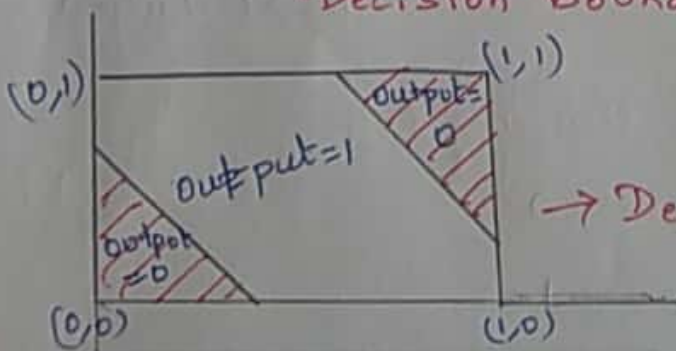 DECISION BOUND
(0,1)
(1,1)
output=
0
output=1
→ De
output
=0
(0,0)
(1,0)